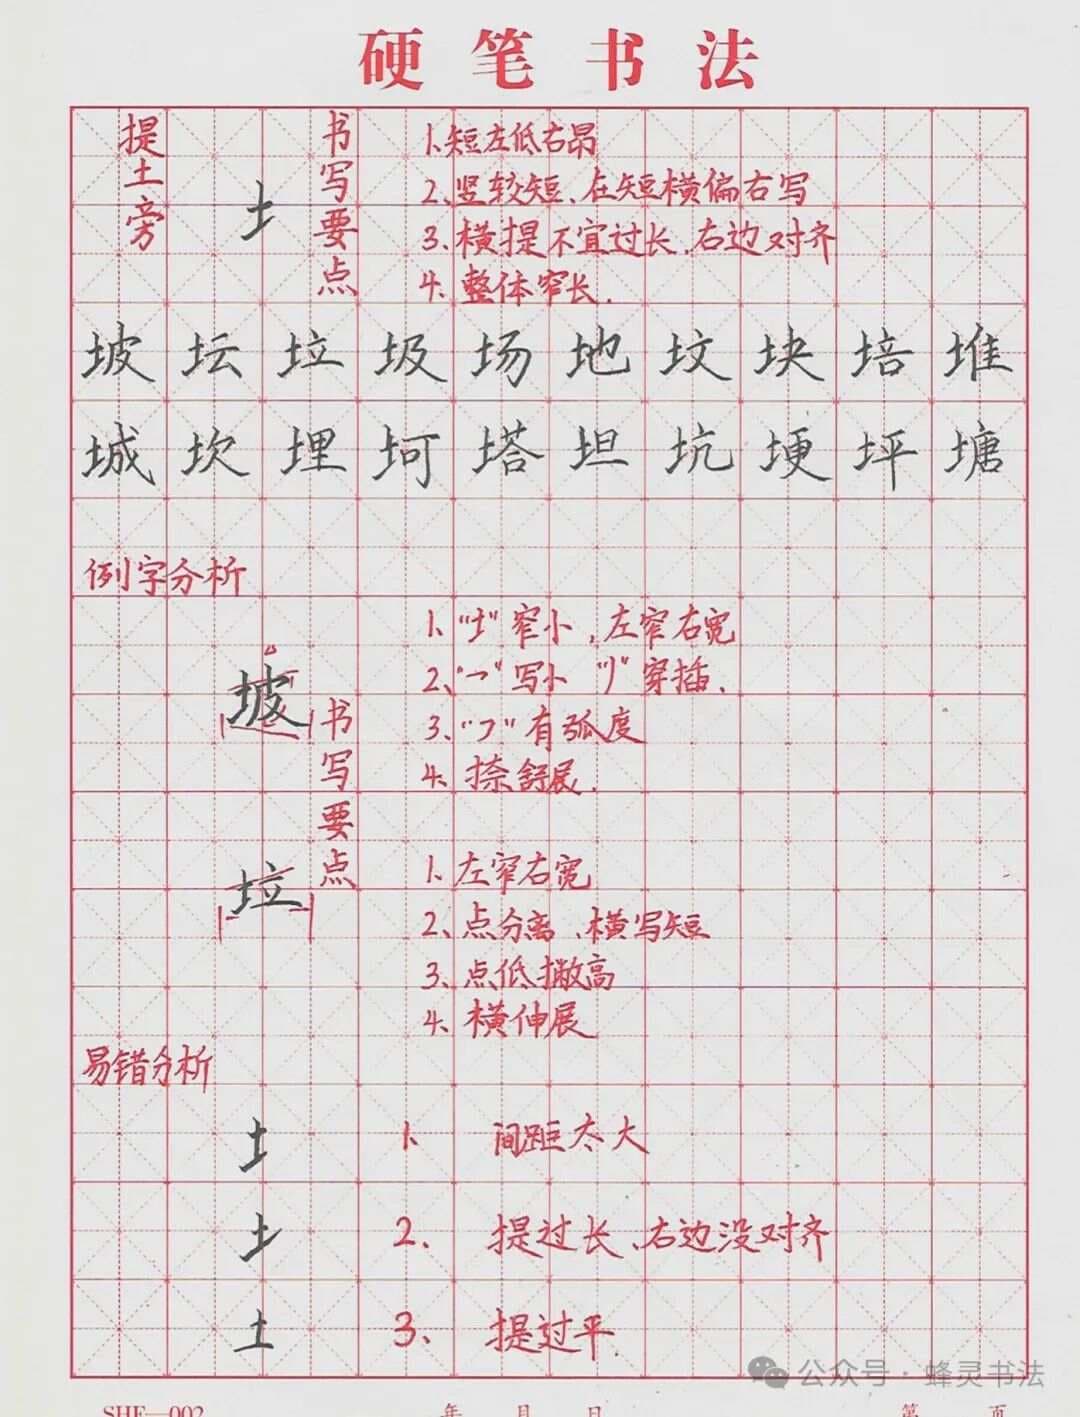 硬笔书法
提土旁
书写要点
1.短左低右昂
2.竖较短、在短横偏右写
3.横提不宜过长,右边对齐
4.整体窄长.
坡坛垃圾场地坟块培堆
城坎埋坷塔坦坑埂坪塘
例字分析
坡
书写要点
1、"土"窄小,左窄右宽
2、"㇖"写小"丿"穿插.
3、"フ"有弧度
4、捺舒展.
垃
1、左窄右宽
2、点分离、横写短
3、点低撇高
4、横伸展
易错分析
土 1、间距太大
土 2、提过长、右边没对齐
土 3、提过平.
公众号·蜂灵书法
SHF—002 年 月 日 第 页